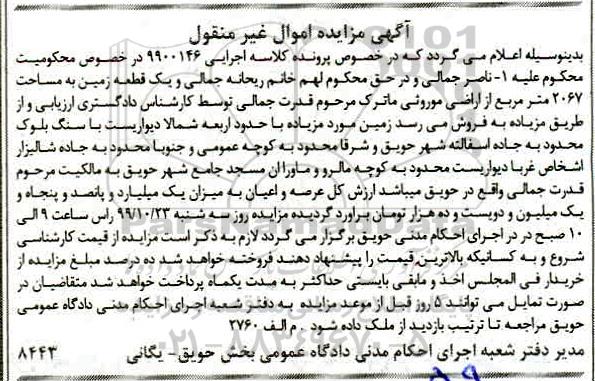 آگهی مزایده اموال غیر منقول
بدینوسیله اعلام می گردد که در خصوص پرونده کلاسه اجرایی ۹۹۰۰۱۴۶ در خصوص محکومیت
محکوم علیه ۱- ناصر جمالی و در حق محکوم لهم خانم ریحانه جمالی و یک قطعه زمین به مساحت
۲۰۶۷ متر مربع از اراضی موروثی ماترک مرحوم قدرت جمالی توسط کارشناس دادگستری ارزیابی و از
طریق مزیاده به فروش می رسد زمین مورد مزیاده با حدود اربعه شمالا دیواریست با سنگ بلوک
محدود به جاده اسفالته شهر حویق و شرقا محدود به کوچه عمومی و جنوبا محدود به جاده شالیزار
اشخاص غربا دیواریست محدود به کوچه مالرو و ماوراان مسجد جامع شهر حویق به مالکیت مرحوم
قدرت جمالی واقع در حویق میباشد ارزش کل عرصه و اعیان به میزان یک میلیارد و پانصد و پنجاه و
یک میلیون و دویست و ده هزار تومان براورد گردیده مزایده روز سه شنبه ۹۹/۱۰/۲۳ راس ساعت ۹ الی
۱۰ صبح در در اجرای احکام مدنی حویق برگزار می گردد لازم به ذکر است مزایده از قیمت کارشناسی
شروع و به کسانیکه بالاترین قیمت را پیشنهاد دهند فروخته خواهد شد ده درصد مبلغ مزایده از
خریدار فی المجلس اخذ و مابقی بایستی حداکثر به مدت یکماه پرداخت خواهد شد متقاضیان در
صورت تمایل می توانند ۵ روز قبل از موعد مزایده به دفتر شعبه اجرای احکام مدنی دادگاه عمومی
حویق مراجعه تا ترتیب بازدید از ملک داده شود . م الف ۲۷۶۰
مدیر دفتر شعبه اجرای احکام مدنی دادگاه عمومی بخش حویق- یگانی ۸۴۴۳
ParsNamadData
۰۲۱-۸۸۳۴۹۶۷۰-۵